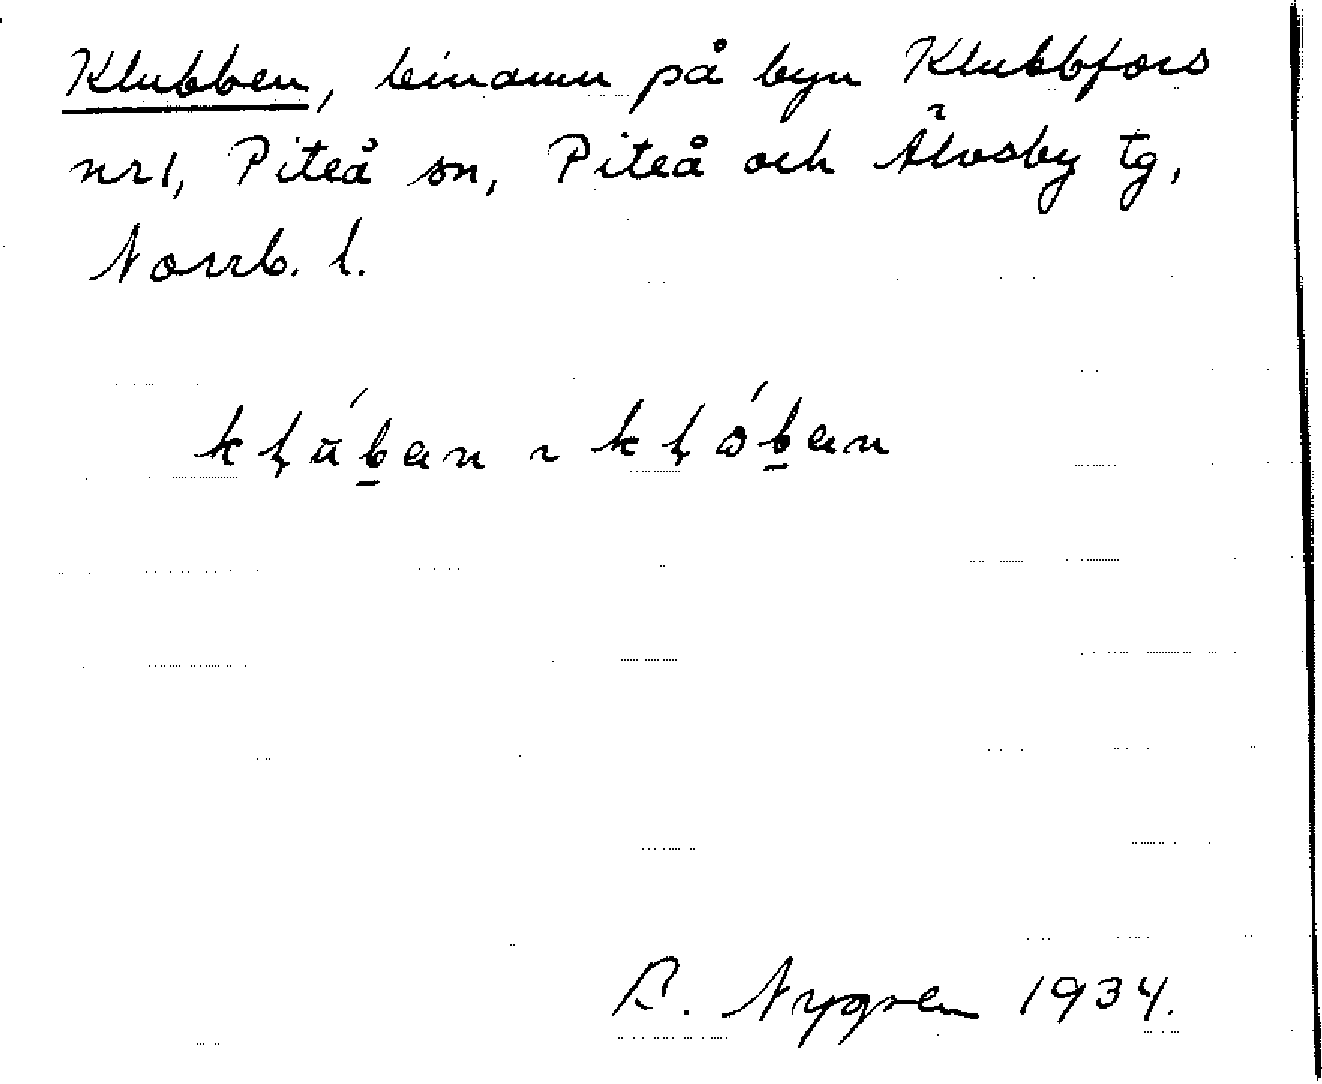 Klubben, binamn på byn Klubbfors
nr 1, Piteå sn, Piteå och Älvsby tg,
Norrb. l.
kḷú̄b̲an ~ kḷób̲an
Nygren 1934.